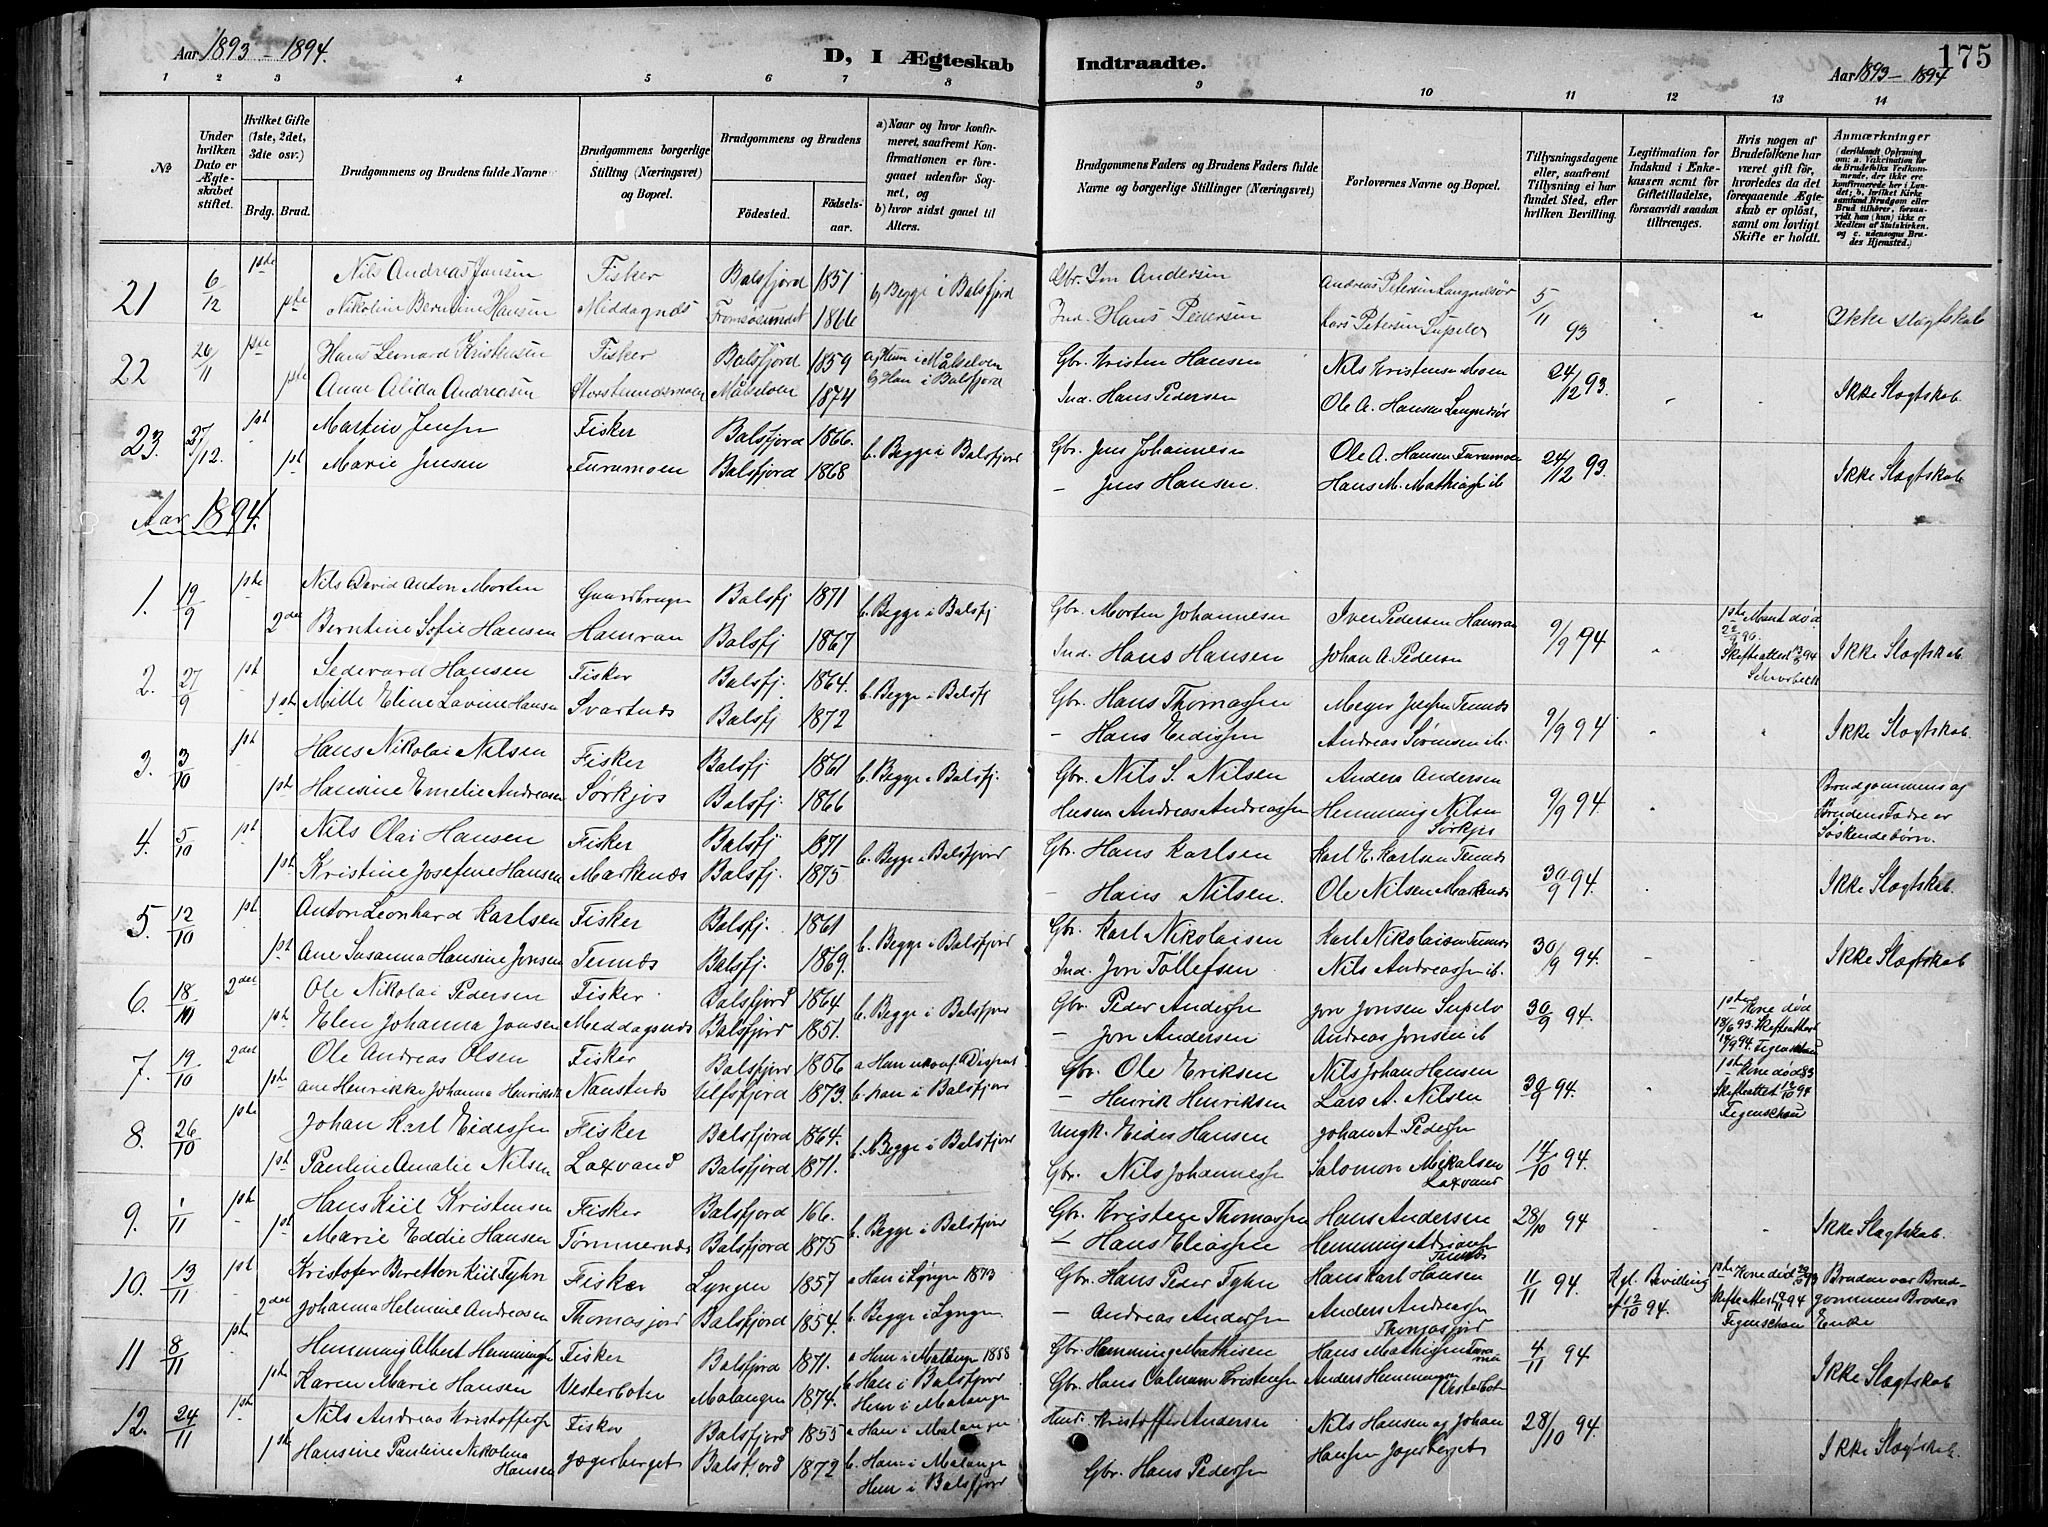 Aar 1893 - 1894.
D, I Ægteskab Indtraadte.
175
Aar 1893 - 1894
1 2 3 4 5 6 7 8 9 10 11 12 13 14
№
Under hvilken Dato er Ægteskabet stiftet.
Hvilket Gifte (1ste, 2det, 3die osv.)
Brdg. Brud.
Brudgommens og Brudens fulde Navne
Brudgommens borgerlige Stilling (Næringsvei) og Bopæl.
Brudgommens og Brudens
Födested. Födselsaar.
a) Naar og hvor konfirmeret, saafremt Konfirmationen er foregaaet udenfor Sognet, og
b) hvor sidst gaaet til Alters.
Brudgommens Faders og Brudens Faders fulde Navne og borgerlige Stillinger (Næringsvei)
Forlovernes Navne og Bopæl.
Tillysningsdagene eller, saafremt Tillysning ei har fundet Sted, efter hvilken Bevilling.
Legitimation for Indskud i Enkekassen samt for Giftetilladelse, forsaavidt saadan tiltrænges.
Hvis nogen af Brudefolkene har været gift för, hvorledes da det foregaaende Ægteskab er oplöst, samt om lovligt Skifte er holdt.
Anmærkninger (deriblandt Oplysning om: a. Vakcination for de Brudefolks Vedkommende, der ikke ere konfirmerede her i Landet; b. hvilket Kirkesamfund Brudgom eller Brud tilhörer, forsaavidt han (hun) ikke er Medlem af Statskirken, og c. udensogns Brudes Hjemsted.)
21 6/12 1ste Nils Andreas Jonsen Fisker Balsfjord 1851 b, Begge i Balsfjord Gbr. Jon Andersen Andreas Petersen 5/11 93 Ikke slagtskab
1ste Nikoline Berntine Hansen Middagsnes Tromsøsundet 1866 Ind. Hans Pedersen Lars Petersen
22 26/11 1ste Hans Leonard Kristensen Fisker Balsfjord 1859 a, Hun i Målselven Gbr. Kristen Hansen Nils Kristensen 24/12 93. Ikke Slagtskab
1ste Anne Alida Andreasen Målselven 1874 b, Han i Balsfjord Ind. Hans Pedersen Ole A. Hansen
23. 27/12. 1st Martin Jensen Fisker Balsfjord 1866. b. Begge i Balsfjord Gbr. Jens Johannesen Ole A. Hansen Furumoen 24/12 93. Ikke Slagtskab
1st Marie Jensen Furumoen Balsfjord 1868 – Jens Hansen. Hans M. Mathias ib
Aar 1894.
1. 19/9 1ste Nils David Anton Morten Gaardbruger Balsfj 1871 b. Begge i Balsfj Gbr. Morten Johannesen Iver Pedersen Hamran 9/9 94 1ste Mand død Skifteattest 94 Ikke Slagtskab
2den Berntine Sofie Hansen Hamran Balsfj 1867 Ind. Hans Hansen Johan A. Pedersen
2. 27/9 1st Sedevard Hansen Fisker Balsfj. 1864. b. Begge i Balsfj Gbr. Hans Thomassen Meyer 9/9 94 Ikke Slagtskab.
1st Mille Eline Lavine Hansen Svartnes Balsfj 1872 – Hans Eidissen Andreas Sørensen ib.
3. 3/10 1st Hans Nikolai Nilsen Fisker Balsfj. 1861 b. Begge i Balsfj. Gbr. Nils S. Nilsen Anders Andersen 9/9 94. Brudgommens og Brudens Fædre er Søskendebørn.
1st Hansine Emelie Andreasen Sørkjos Balsfj. 1866 Husm Andreas Andreassen Hemming Nilsen Sørkjos
4. 5/10 1st Nils Olai Hansen Fisker Balsfj 1871 b. Begge i Balsfjord Gbr. Hans Karlsen Karl E. Karlsen Tennes 30/9 94. Ikke Slagtskab
1st Kristine Josefine Hansen Markenes Balsfj. 1875 – Hans Nilsen. Ole Nilsen Markenes
5. 12/10 1st Anton Leonhard Karlsen Fisker Balsfj. 1861 b. Begge i Balsfjord Gbr. Karl Nikolaisen Karl Nikolaisen Tennes 30/9 94. Ikke Slagtskab
1st Ane Susanna Hansine Jonsen Tennes Balsfj. 1869. Ind. Jon Tollefsen Nils Andreassen ib.
6. 18/10 2det Ole Nikolai Pedersen Fisker Balsfjord 1864 b. Begge i Balsfjord Gbr. Peder Anderssen Jon Jonsen 30/9 94. 1ste Kone død 18/6 93. Skifteattest 14/9 94. Figenschau
1st Elen Johanna Jonsen Meddagsnes Balsfjord 1851. – Jon Andersen Andreas Jonsen ib
7. 19/10 2det Ole Andreas Olsen Fisker Balsfjord 1856 a Han ukonf. Gbr. Ole Eriksen Nils Johan Hansen 30/9 94. 1st Kone død 83 Skifteattest 12/10 94 Figenschau
1st Ane Henrikke Johanna Henriks Ulfsfjord 1873. b. han i Balsfjord – Henrik Henriksen Lars A. Nilsen
8. 26/10 1ste Johan Karl Eidessen Fisker Balsfjord 1864. b. Begge i Balsfjord Ungk. Eides Hansen Johan A. Pedersen 14/10 94.
1st Pauline Amalie Nilsen Laxvand Balsfjord 1871. Gbr. Nils Johannessen Salomon Mikalsen Laxvand
9. 1/11 1st Hans Kiil Kristensen Fisker Balsfjord 166. b. Begge i Balsfjord Gbr. Kristen Thomassen Hans Andersen 28/10 94 Ikke Slagtskab.
1st Marie Eddie Hansen Tømmernes Balsfjord 1875 – Hans Eliassen Hemming
10. 13/11 1st Kristofer Beretton Kiil Fyhn Fisker Lyngen 1857 a Han i Lyngen 1873 Gbr. Hans Peder Fyhn Hans Karl Hansen 11/11 94. Kgl. Bevilling af 12/10 94. 1ste Kone død Skifteattest 94 Figenschau Bruden var Brudgommens Broders Enke
2det Johanna Helmine Andreasen Thomasjord Balsfjord 1854. b. Begge i Lyngen – Andreas Anderssen Anders Andreassen Thomasjord
11 8/11 1st Hemming Albert Hemmingsen Fisker Balsfjord 1871. a Hun i Malangen 1888 Gbr. Hemming Mathisen Hans Mathissen 4/11 94 Ikke Slagtskab
1st Karen Marie Hansen Vesterboten Malangen 1874. b. Han i Balsfjord Hun i Malangen Gbr. Hans Kristensen Anders Hemmingsen Vesterboten
12. 24/11 1st Nils Andreas Kristoffersen Fisker Balsfjord 1855 a Han i Malangen Kristoffer Andersen Nils Hansen og Johan 28/10 94. Ikke Slagtskab.
1st Hansine Pauline Nikolina Hansen Jægerberget Balsfjord 1872 b. Han i Malangen Hun i Balsfjord Gbr. Hans Pedersen Hansen Jægerberget